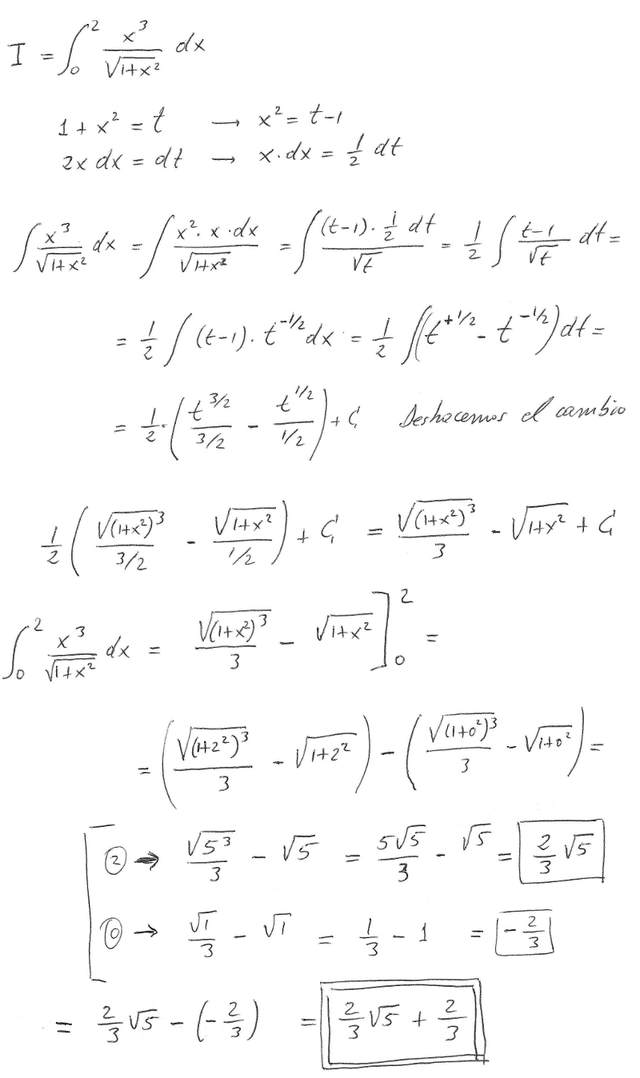 I = ∫₀² x³/√(1+x²) dx
1 + x² = t → x² = t-1
2x dx = dt → x·dx = 1/2 dt
∫ x³/√(1+x²) dx = ∫ x²·x·dx/√(1+x²) = ∫ (t-1)·1/2 dt/√t = 1/2 ∫ t-1/√t dt =
= 1/2 ∫ (t-1)·t^(-1/2) dx = 1/2 ∫(t^(+1/2) - t^(-1/2)) dt =
= 1/2·(t^(3/2)/(3/2) - t^(1/2)/(1/2)) + C Deshacemos el cambio
1/2 (√(1+x²)³/(3/2) - √(1+x²)/(1/2)) + C = √(1+x²)³/3 - √(1+x²) + C
∫₀² x³/√(1+x²) dx = √(1+x²)³/3 - √(1+x²) ]₀² =
= (√(1+2²)³/3 - √(1+2²)) - (√(1+0²)³/3 - √(1+0²)) =
② → √5³/3 - √5 = 5√5/3 - √5 = 2/3 √5
⓪ → √1/3 - √1 = 1/3 - 1 = -2/3
= 2/3 √5 - (-2/3) = 2/3 √5 + 2/3